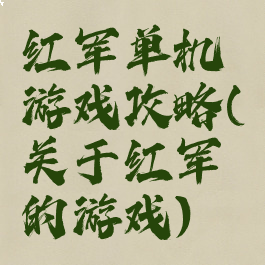 红军单机
游戏攻略(
关于红军
的游戏)